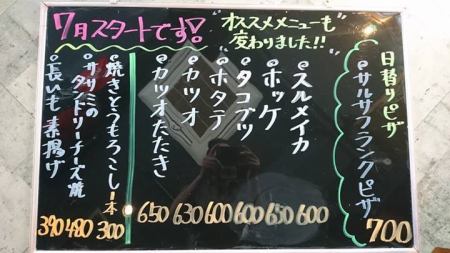 7月スタートです!
"オススメメニューも
変わりました!!"
日替りピザ
•サルサフランクピザ
700
•スルメイカ
600
•ホッケ
650
•タコブツ
600
•ホタテ
600
•カツオ
630
•カツオたたき
650
•焼きとうもろこし1本
300
•ササミの
タンドリーチーズ焼
480
•長いも素揚げ
390